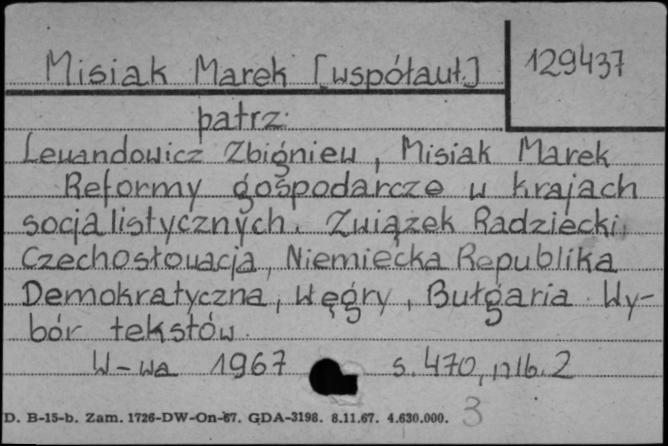 Misiak Marek [współaut.]
129437
patrz:
Lewandowicz Zbigniew, Misiak Marek
Reformy gospodarcze w krajach
socjalistycznych. Związek Radziecki,
Czechosłowacja, Niemiecka Republika
Demokratyczna, Węgry, Bułgaria. Wy-
bór tekstów.
W-wa 1967 s. 470, nlb. 2
3
D. B-15-b. Zam. 1726-DW-On-67. GDA-3198. 8.11.67. 4.630.000.